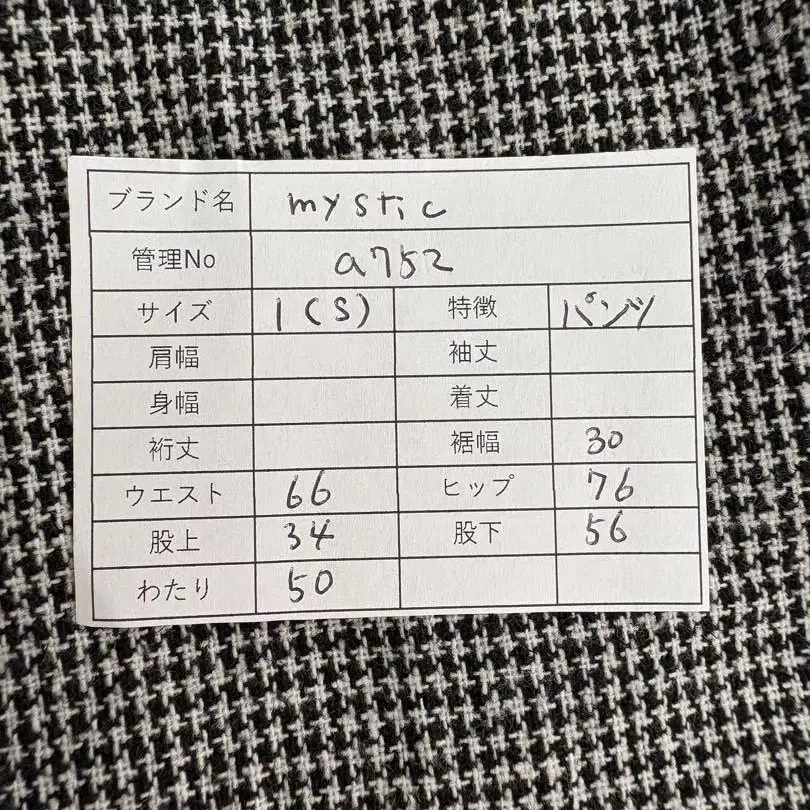 ブランド名 mystic
管理No a752
サイズ 1(S) 特徴 パンツ
肩幅 袖丈
身幅 着丈
裄丈 裾幅 30
ウエスト 66 ヒップ 76
股上 34 股下 56
わたり 50